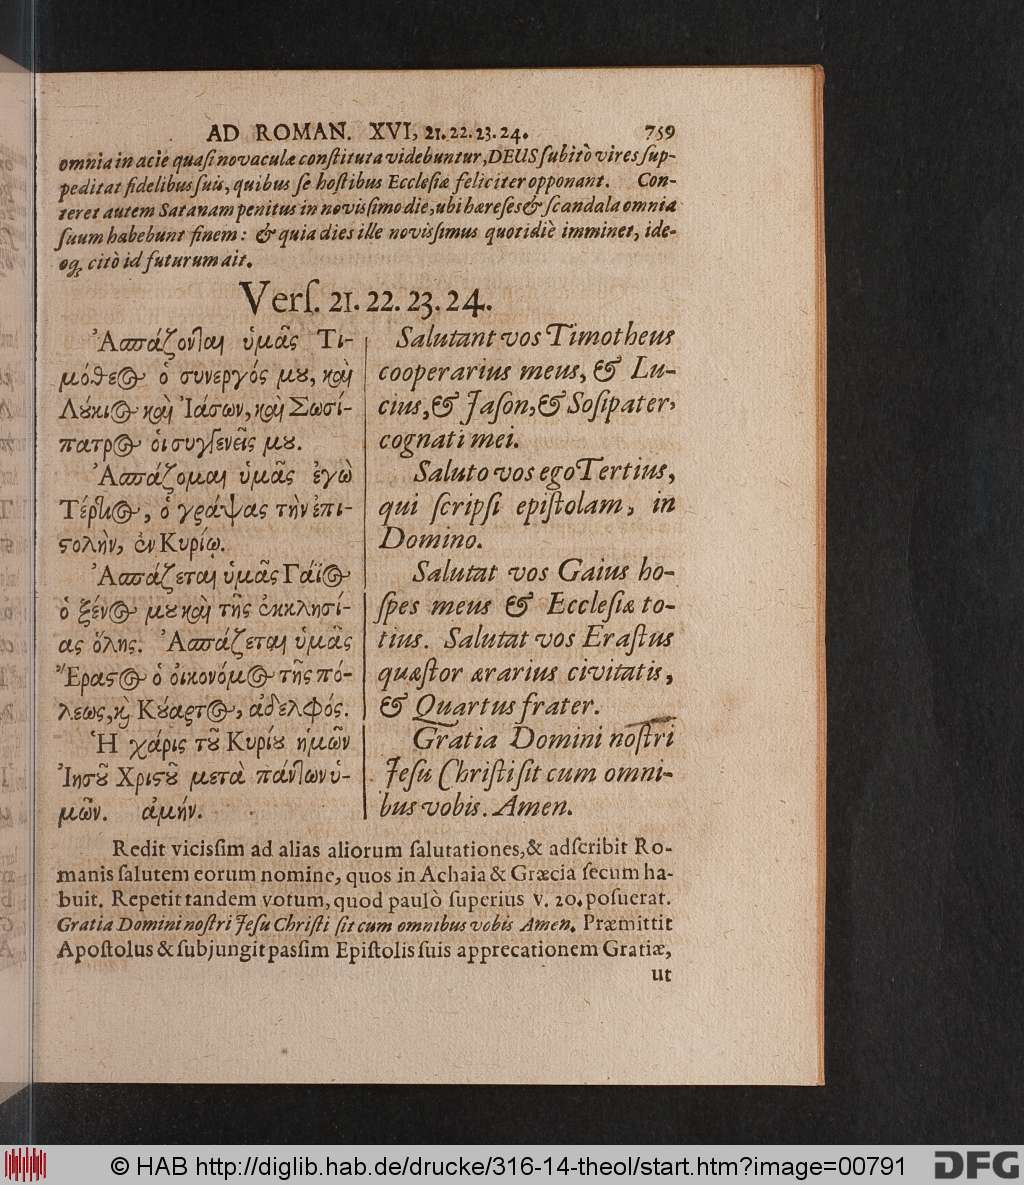 AD ROMAN. XVI, 21.22.23.24. 759
omnia in acie quaſi novaculæ conſtituta videbuntur, DEUS ſubitò vires ſup-
peditat fidelibus ſuis, quibus ſe hoſtibus Eccleſiæ feliciter opponant. Con-
teret autem Satanam penitus in noviſſimo die, ubi hæreſes & ſcandala omnia
ſuum habebunt finem: & quia dies ille noviſſimus quotidiè imminet, ide-
oq; citò id futurum ait.
Verſ. 21. 22. 23. 24.
Ἀσπάζονται ὑμᾶς Τι-
μόθεος ὁ συνεργός μου, καὶ
Λούκιος καὶ Ἰάσων, καὶ Σωσί-
πατρος οἱ συγγενεῖς μου.
Ἀσπάζομαι ὑμᾶς ἐγὼ
Τέρτιος, ὁ γράψας τὴν ἐπι-
στολὴν, ἐν Κυρίῳ.
Ἀσπάζεται ὑμᾶς Γάϊος
ὁ ξένος μου καὶ τῆς ἐκκλησί-
ας ὅλης. Ἀσπάζεται ὑμᾶς
Ἔραστος ὁ οἰκονόμος τῆς πό-
λεως, καὶ Κούαρτος, ἀδελφός.
Ἡ χάρις τοῦ Κυρίου ἡμῶν
Ἰησοῦ Χριστοῦ μετὰ πάντων ὑ-
μῶν. ἀμήν.
Salutant vos Timotheus
cooperarius meus, & Lu-
cius, & Jaſon, & Soſipater,
cognati mei.
Saluto vos ego Tertius,
qui ſcripſi epiſtolam, in
Domino.
Salutat vos Gaius ho-
ſpes meus & Eccleſiæ to-
tius. Salutat vos Eraſtus
quæſtor ærarius civitatis,
& Quartus frater.
Gratia Domini noſtri
Jeſu Chriſti ſit cum omni-
bus vobis. Amen.
Redit viciſſim ad alias aliorum ſalutationes, & adſcribit Ro-
manis ſalutem eorum nomine, quos in Achaia & Græcia ſecum ha-
buit. Repetit tandem votum, quod paulò ſuperius v. 20. poſuerat.
Gratia Domini noſtri Jeſu Chriſti ſit cum omnibus vobis Amen. Præmittit
Apoſtolus & ſubjungit paſſim Epiſtolis ſuis apprecationem Gratiæ,
ut
© HAB http://diglib.hab.de/drucke/316-14-theol/start.htm?image=00791 DFG